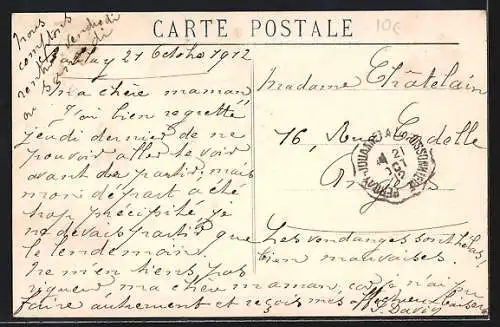 10€
CARTE POSTALE
nous
comptons
rentrer vendredi
ou samedi
21 Octobre 1912
Ma chère maman
J'ai bien regretté
jeudi dernier de ne
pouvoir aller te voir
avant de partir, mais
mon départ a été
trop précipité je
ne devais partir que
le lendemain.
Ne m'en tiens pas
rigueur ma chère maman, car je n'ai pu
faire autrement et reçois mes affectueux baisers
J. David
Madame Châtelain
76, Rue
Les vendanges sont hélas!
bien mauvaises.
21